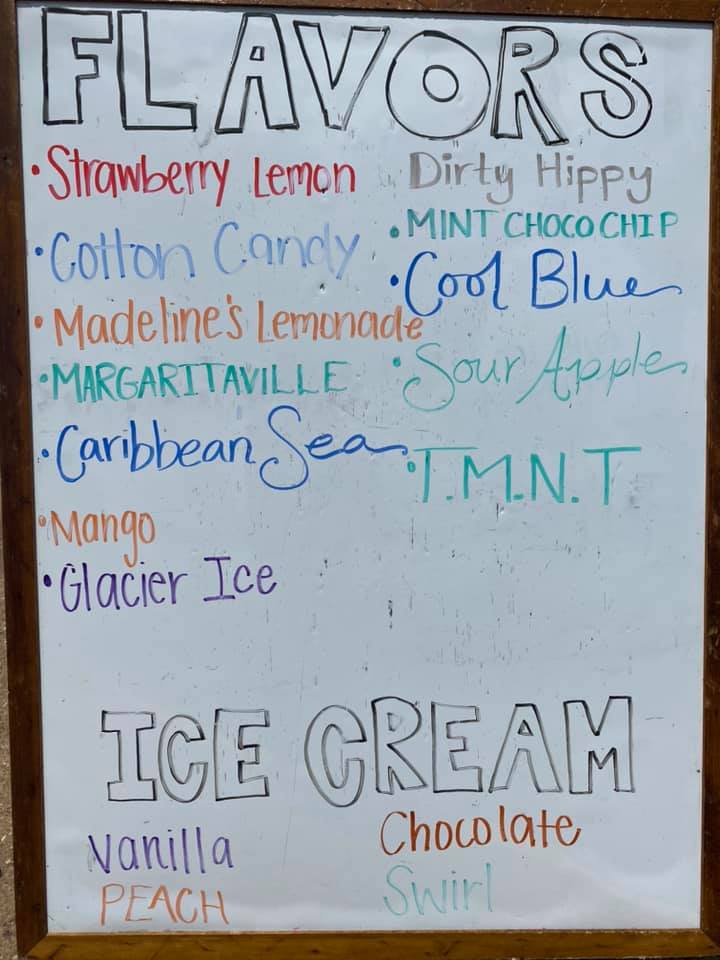 FLAVORS
•Strawberry Lemon
•Cotton Candy
•Madeline's Lemonade
•MARGARITAVILLE
•Caribbean Sea
•Mango
•Glacier Ice
Dirty Hippy
•MINT CHOCO CHIP
•Cool Blue
•Sour Apple
•T.M.N.T
ICE CREAM
Vanilla
PEACH
Chocolate
Swirl